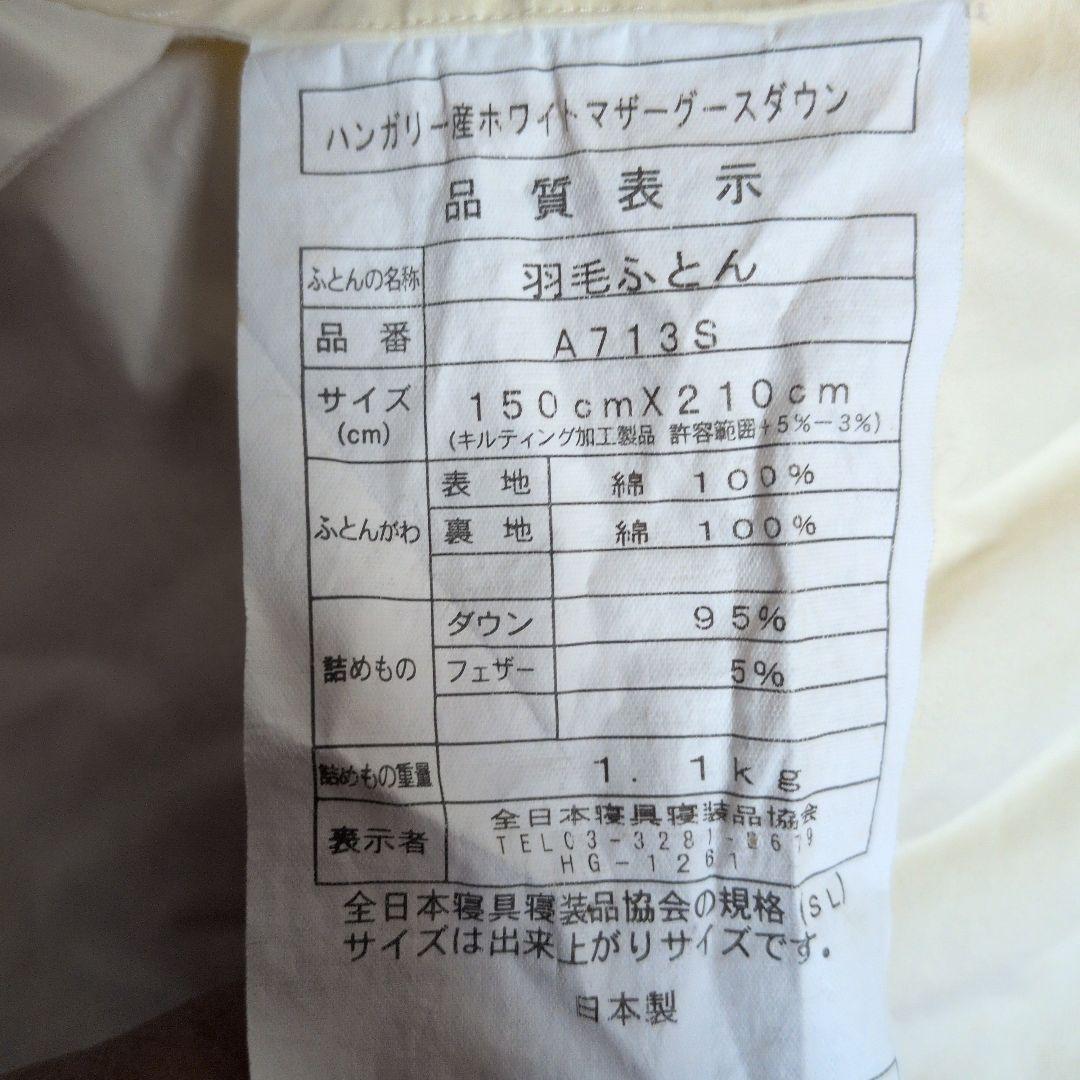 ハンガリー産ホワイトマザーグースダウン
品質表示
ふとんの名称 羽毛ふとん
品番 A713S
サイズ(cm) 150cmX210cm
(キルティング加工製品 許容範囲+5%-3%)
ふとんがわ 表地 綿 100%
裏地 綿 100%
詰めもの ダウン 95%
フェザー 5%
詰めもの重量 1.1kg
表示者 全日本寝具寝装品協会
TEL03-3281-
HG-1261
全日本寝具寝装品協会の規格(SL)
サイズは出来上がりサイズです.
日本製